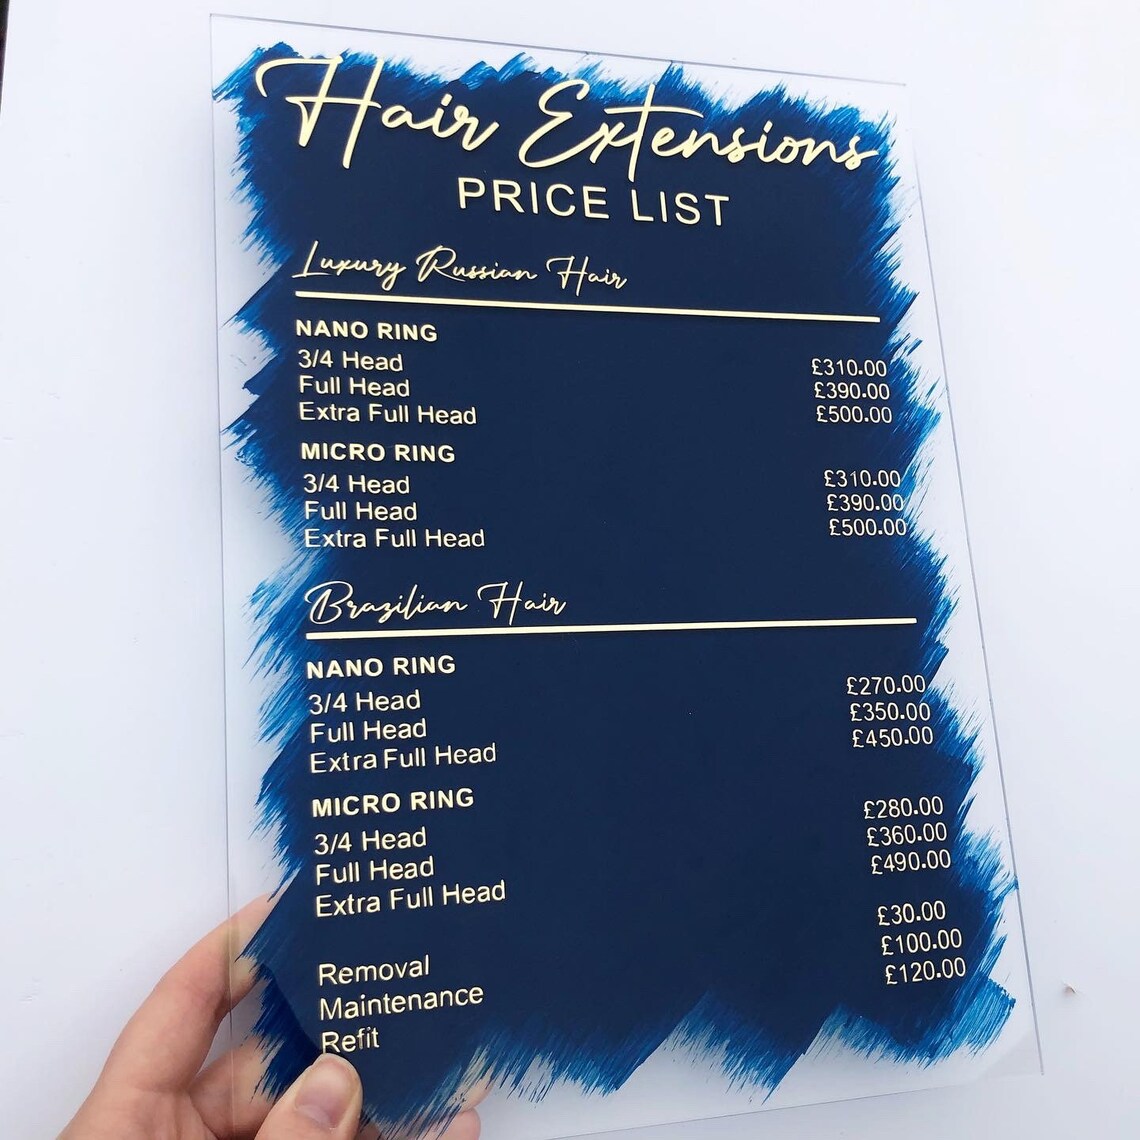 Hair Extensions
PRICE LIST
Luxury Russian Hair
NANO RING
3/4 Head £310.00
Full Head £390.00
Extra Full Head £500.00
MICRO RING
3/4 Head £310.00
Full Head £390.00
Extra Full Head £500.00
Brazilian Hair
NANO RING
3/4 Head £270.00
Full Head £350.00
Extra Full Head £450.00
MICRO RING
3/4 Head £280.00
Full Head £360.00
Extra Full Head £490.00
Removal £30.00
Maintenance £100.00
Refit £120.00